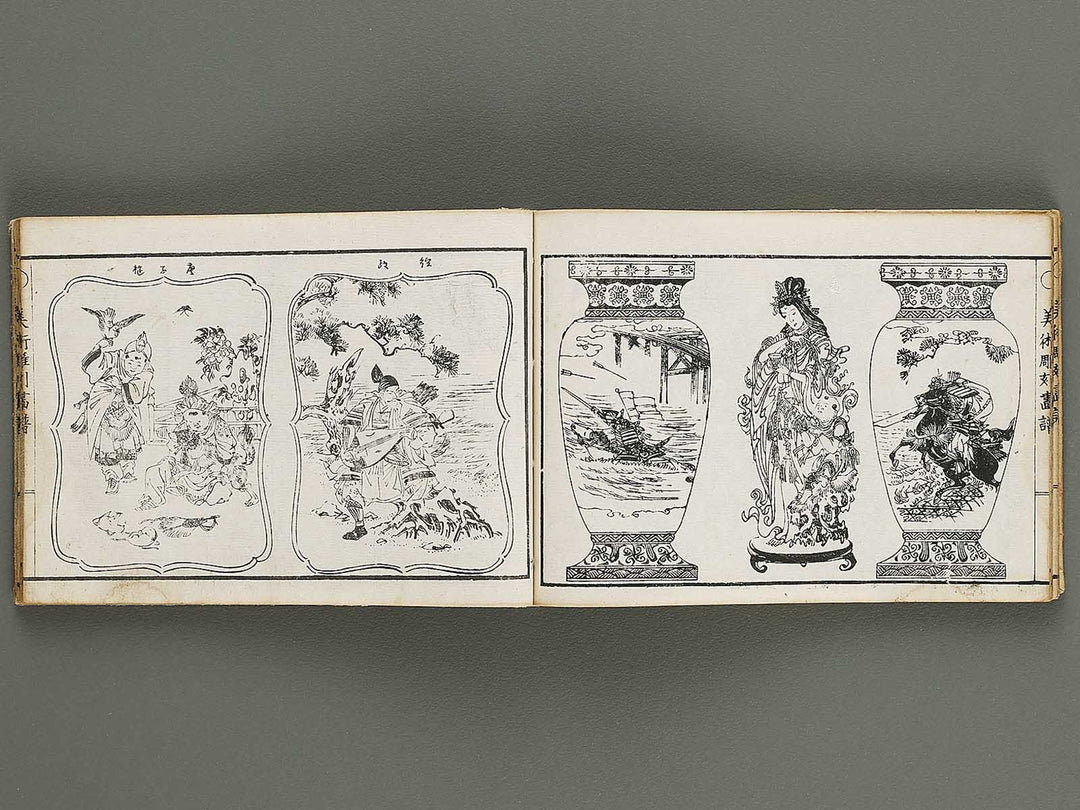 美術彫刻畫譜
経政
唐子遊
美術彫刻畫譜